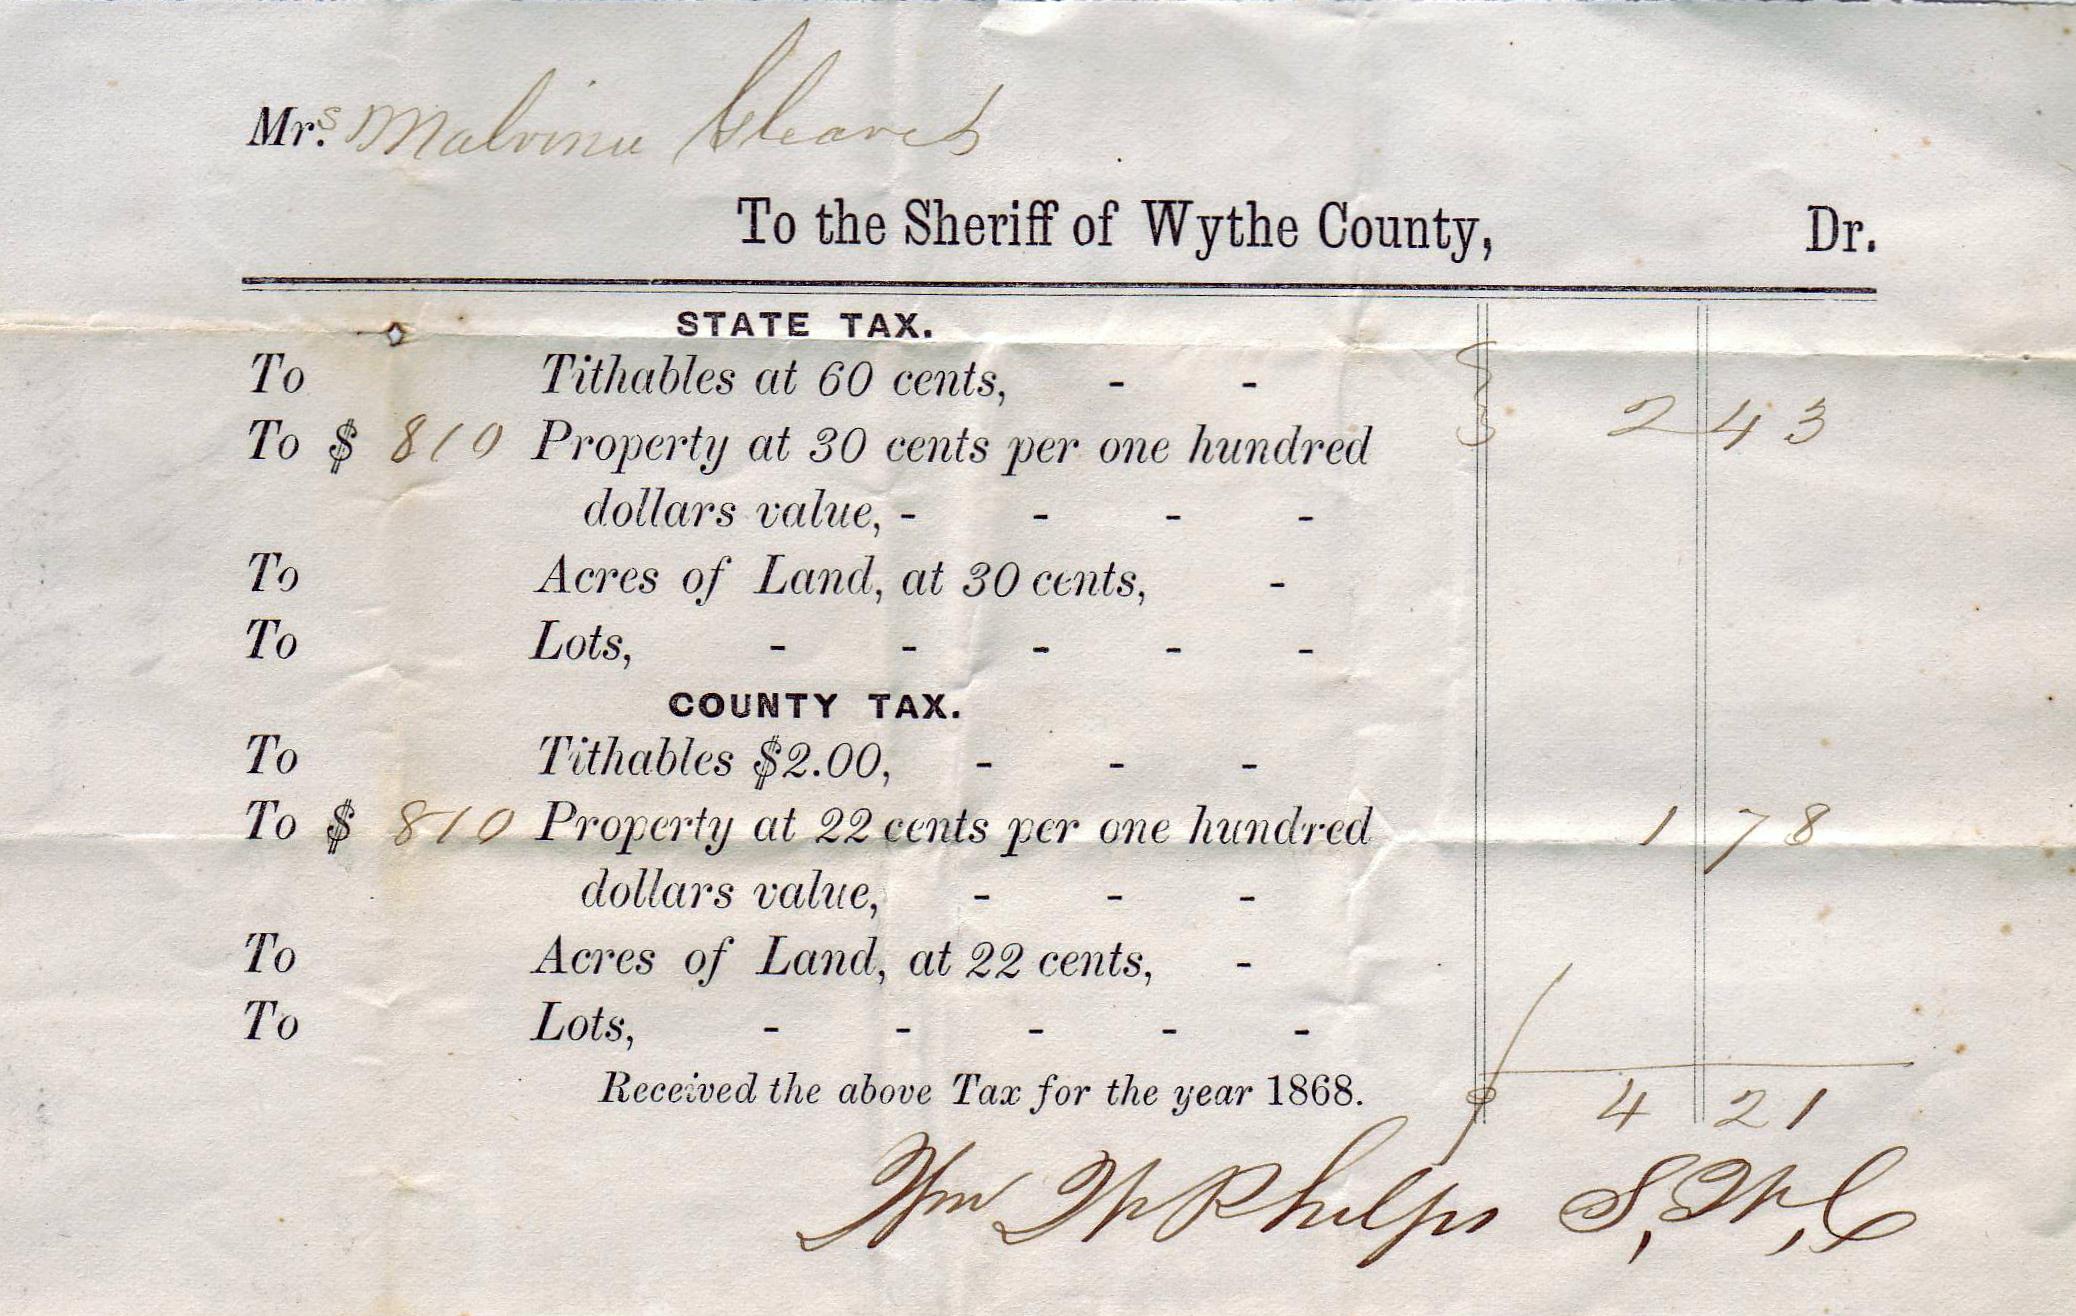 Mr.s Malvina Cleaves
To the Sheriff of Wythe County, Dr.
STATE TAX.
To Tithables at 60 cents, - -
To $ 810 Property at 30 cents per one hundred $ 2 43
dollars value, - - - -
To Acres of Land, at 30 cents, -
To Lots, - - - - -
COUNTY TAX.
To Tithables $2.00, - - -
To $ 810 Property at 22 cents per one hundred 1 78
dollars value, - - -
To Acres of Land, at 22 cents, -
To Lots, - - - - -
Received the above Tax for the year 1868. $ 4 21
Wm W Phelps S, W, C